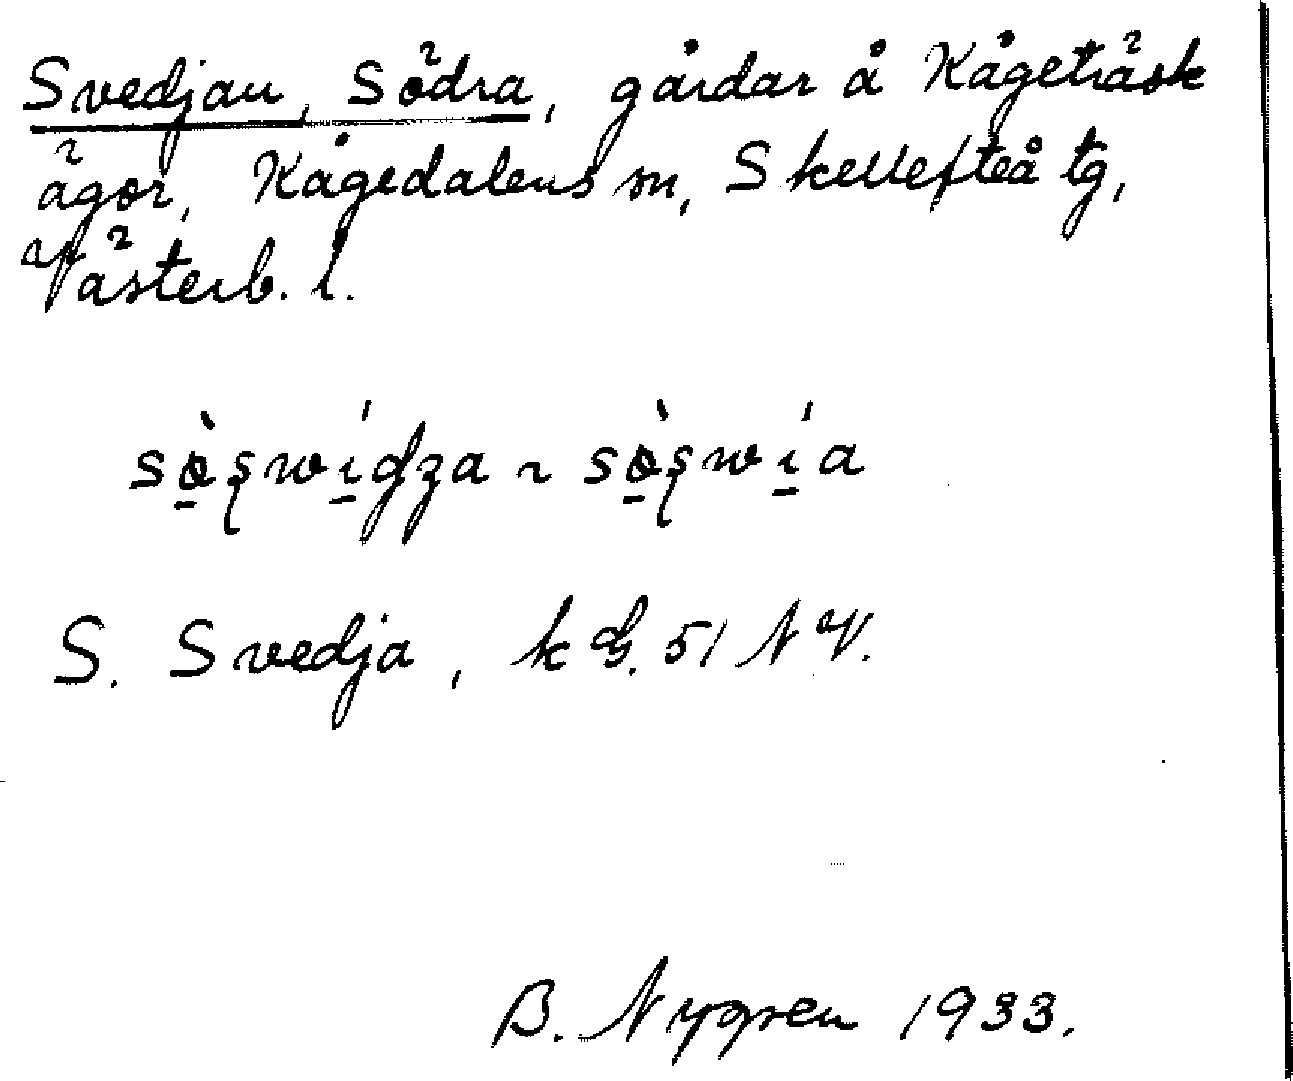 Svedjan, Södra, gårdar å Kågeträsk
ägor, Kågedalens sn, Skellefteå tg,
Västerb. l.
sö̀ʂwídʒa ~ sö̀ʂwía
S. Svedja, k G. 51 NV.
B. Nygren 1933.